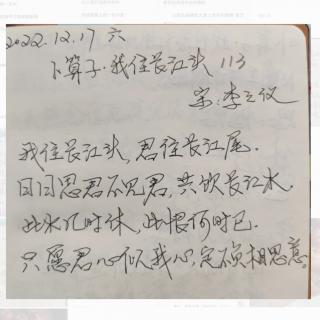 2022.12.17 六
卜算子·我住长江头 113
宋:李之仪
我住长江头,君住长江尾.
日日思君不见君,共饮长江水.
此水几时休,此恨何时已.
只愿君心似我心,定不负相思意。